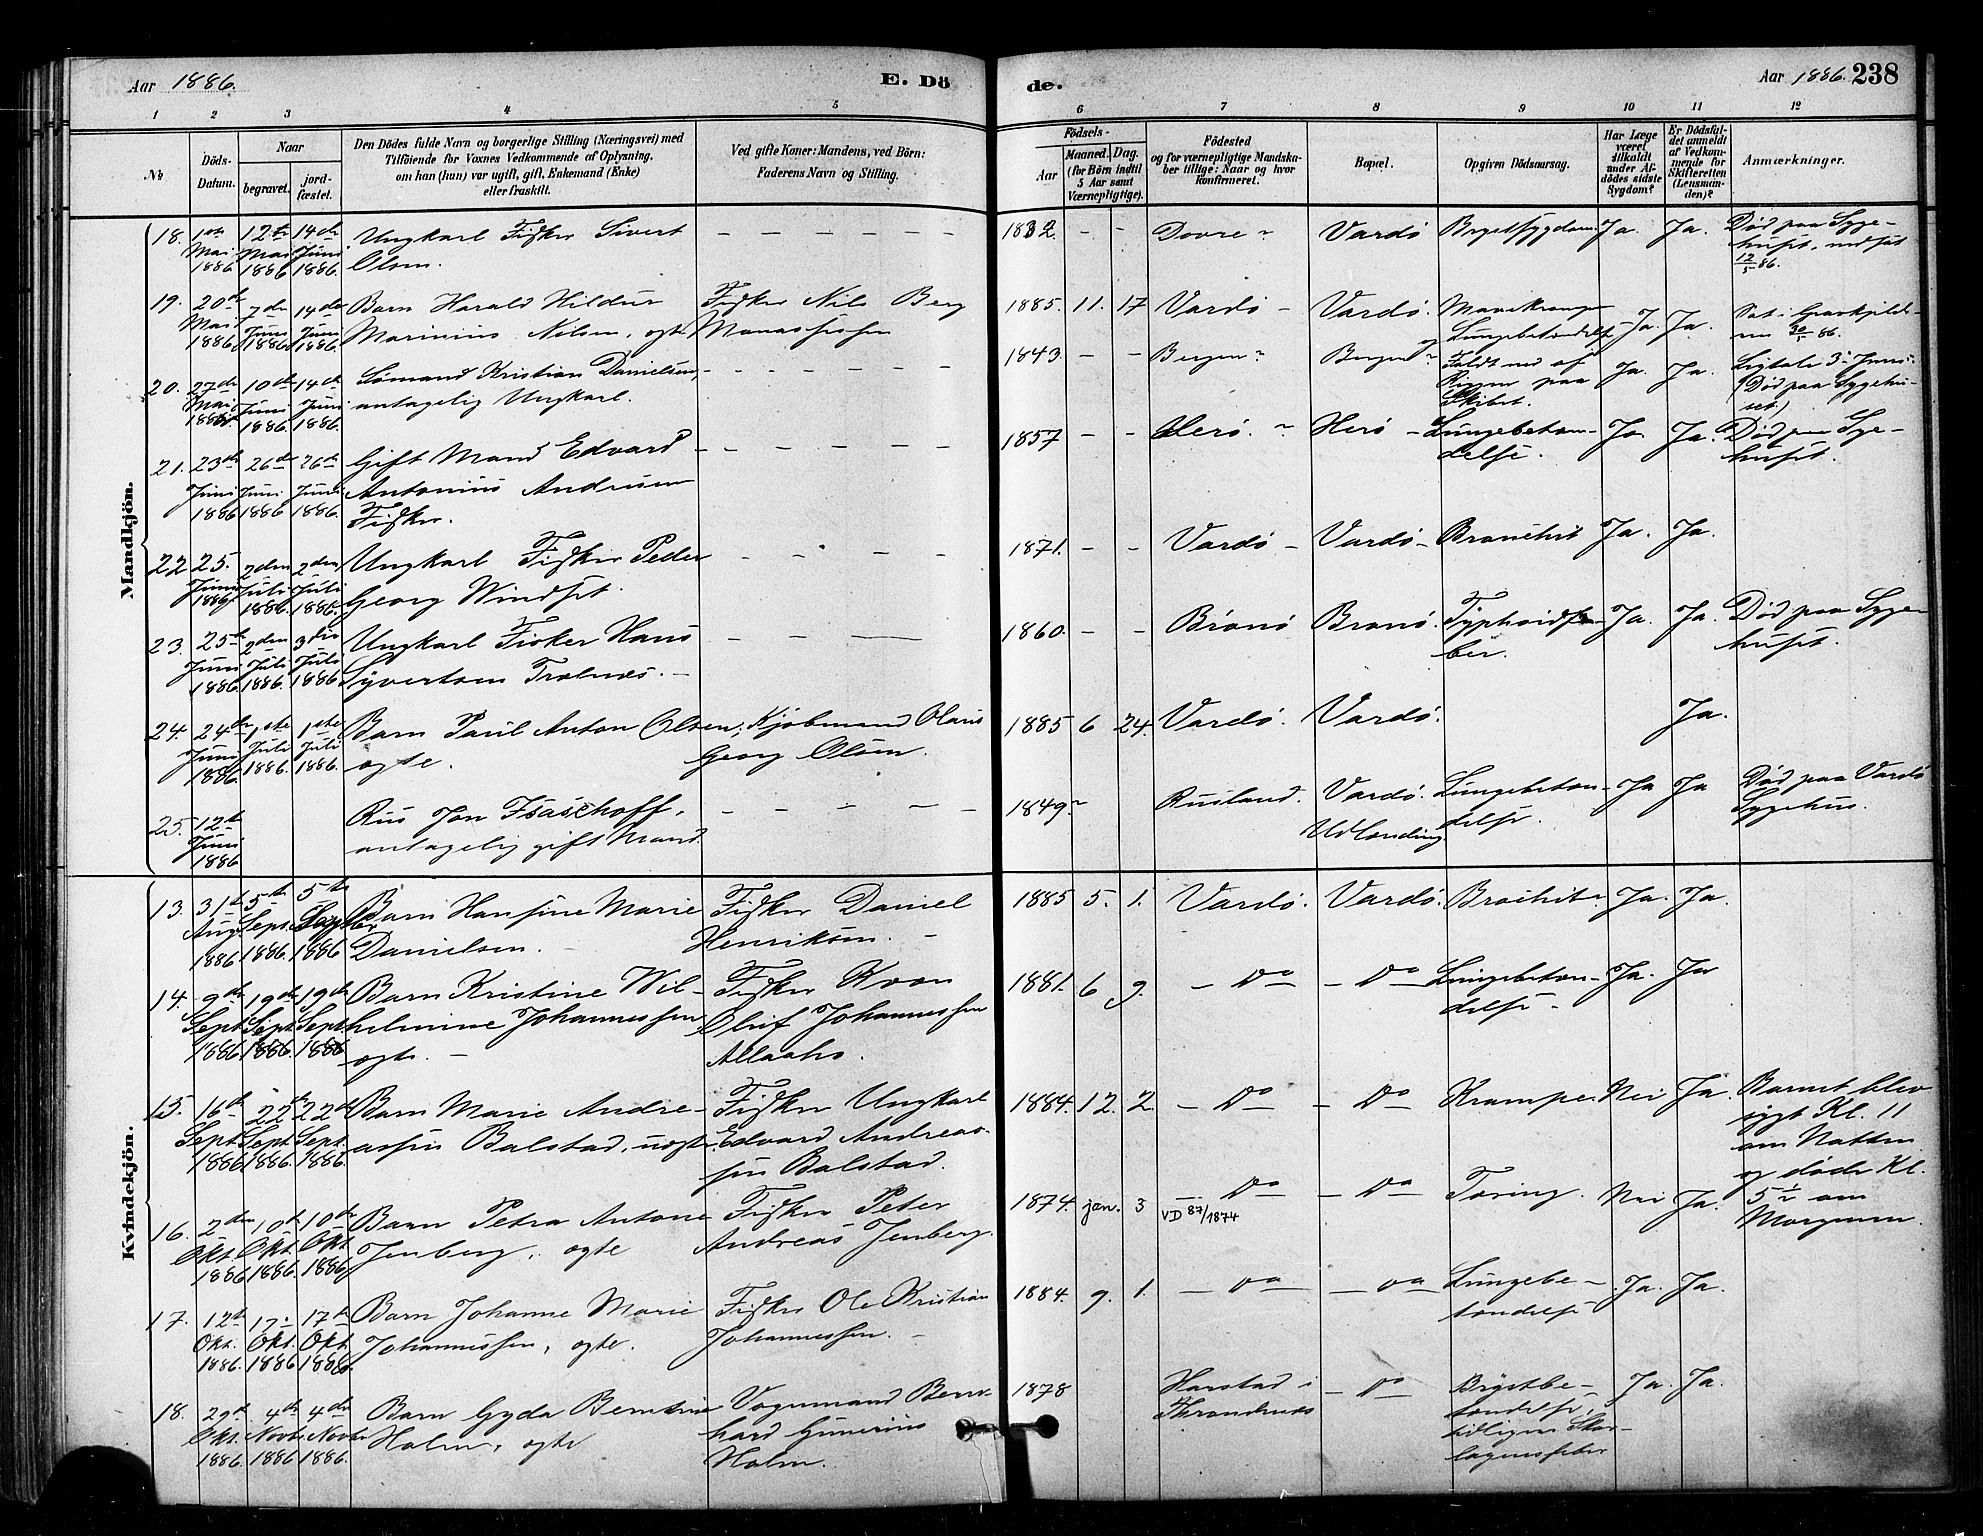 Aar 1886.
E. Dö
de.
Aar 1886. 238
1 2 3 4 5 6 7 8 9 10 11 12
No
Döds-
Datum.
Naar
begravet.
jord-
fæstet.
Den Dödes fulde Navn og borgerlige Stilling (Næringsvei) med
Tilföiende for Voxnes Vedkommende af Oplysning,
om han (hun) var ugift, gift, Enkemand (Enke)
eller fraskilt.
Ved gifte Koner: Mandens, ved Börn:
Faderens Navn og Stilling.
Födsels-
Aar
Maaned. Dag.
(for Börn indtil
5 Aar samt
Værnepligtige).
Födested
og for værnepligtige Mandska-
ber tillige: Naar og hvor
konfirmeret.
Bopæl.
Opgiven Dödsaarsag.
Har Læge
været
tilkaldt
under Af-
dödes sidste
Sygdom?
Er Dödsfal-
det anmeldt
af Vedkom-
mende for
Skifteretten
(Lensman-
den)?
Anmærkninger.
Mandkjön.
18. 1ste Mai 1886 12te Mai 1886 14de Juni 1886. Ungkarl Fisker Sivert
Olsen.
1832. - - Dovre Vardö Brystsygdom Ja. Ja. Död paa Syge-
huset, nedsat
12/5 86.
19. 20de Mai 1886 7de Juni 1886. 14de Juni 1886. Barn Harald Hildur
Marinius Nilsen, ægte
Fisker Nils Berg
Manassesen
1885. 11. 17 Vardö - Vardö. Mavekrampe
og Lungebetændelse Ja. Ja. Sat i Gravkjelde-
ren 30/5 86.
20. 27de Mai 1886 10de Juni 1886. 14de Juni 1886. Sömand Kristian Danielsen,
antagelig Ungkarl.
1843. - - Bergen Bergen Faldt ned af
Riggen paa
Skibet. Ja. Ja. Ligtale 3 Juni
(Död paa Sygehu-
set)
21. 23de Juni 1886 26de Juni 1886 26de Juni 1886. Gift Mand Edvard
Antonius Andresen
Fisker.
1857 - - Herö. Herö - Lungebetæn-
delse. Ja Ja. Död paa Syge-
huset.
22 25. Juni 1886. 2den Juli 1886. 2den Juli 1886. Ungkarl Fisker Peder
Georg Windset.
1871. - - Vardö - Vardö - Bronchit Ja. Ja.
23. 25te Juni 1886 2den Juli 1886. 3die Juli 1886 Ungkarl Fisker Hans
Syvertsen Trælnæs. -
1860. - - Brönö Brönö. Typhoidfe-
ber. Ja. Ja. Död paa Syge-
huset.
24. 24de Juni 1886. 1ste Juli 1886. 1ste Juli 1886. Barn Paul Anton Olsen,
ægte.
Kjöbmand Olaus
Georg Olsen.
1885 6 24. Vardö. Vardö. Ja.
25. 12te Juni 1886 Rus Jon Isaschoff,
antagelig gift Mand.
1849 Rusland. Vardö.
Udlænding. Lungebetæn-
delse. Ja Ja Död paa Vardö
Sygehus.
Kvindekjön.
13. 31te Aug. 1886 5te Sept. 1886. 5te Septbr. 1886 Barn Hansine Marie
Danielsen. -
Fisker Daniel
Henriksen. -
1885 5. 1. Vardö. Vardö. Brochit Ja. Ja.
14. 9de Sept. 1886. 19de Sept 1886. 19de Sept 1886 Barn Kristine Wil-
helmine Johannessen,
ægte. -
Fisker Kvæn
Oluf Johannessen
Allaaho.
1881. 6 9. - Do - Do Lungebetæn-
delse - Ja. Ja
15. 16de Sept. 1886 22de Sept. 1886. 22de Sept. 1886. Barn Marie Andre-
assen Balstad, uægte.
Fisker Ungkarl
Edvard Andreas-
sen Balstad.
1884. 12. 2 - Do - Do Krampe. Nei Ja. Barnet blev
sygt Kl. 11
om Natten
og döde Kl.
5 1/2 om
Morgenen.
16. 2den Okt. 1886 10de Okt. 1886. 10de Okt 1886 Barn Petra Antone
Jenberg, ægte
Fisker Peter
Andreas Jenberg.
1874. jan. 3 Do
VD 87/1874 - Do - Tæring. Nei Ja.
17. 12te Okt. 1886. 17. Okt. 1886 17de Okt 1886. Barn Johanne Marie
Johannessen, ægte.
Fisker Ole Kristian
Johannessen. -
1884. 9. 1. - Do - Do Lungebe-
tændelse Ja. Ja.
18. 29de Okt. 1886. 4de Novbr. 1886 4de Novbr 1886. Barn Gyda Berntine
Holm, ægte
Vognmand Bern-
hard Gunerius
Holm.
1878 Harstad i
Throndenæs - Do Brystbe-
tændelse,
tidligere Skar-
lagensfeber Ja. Ja.